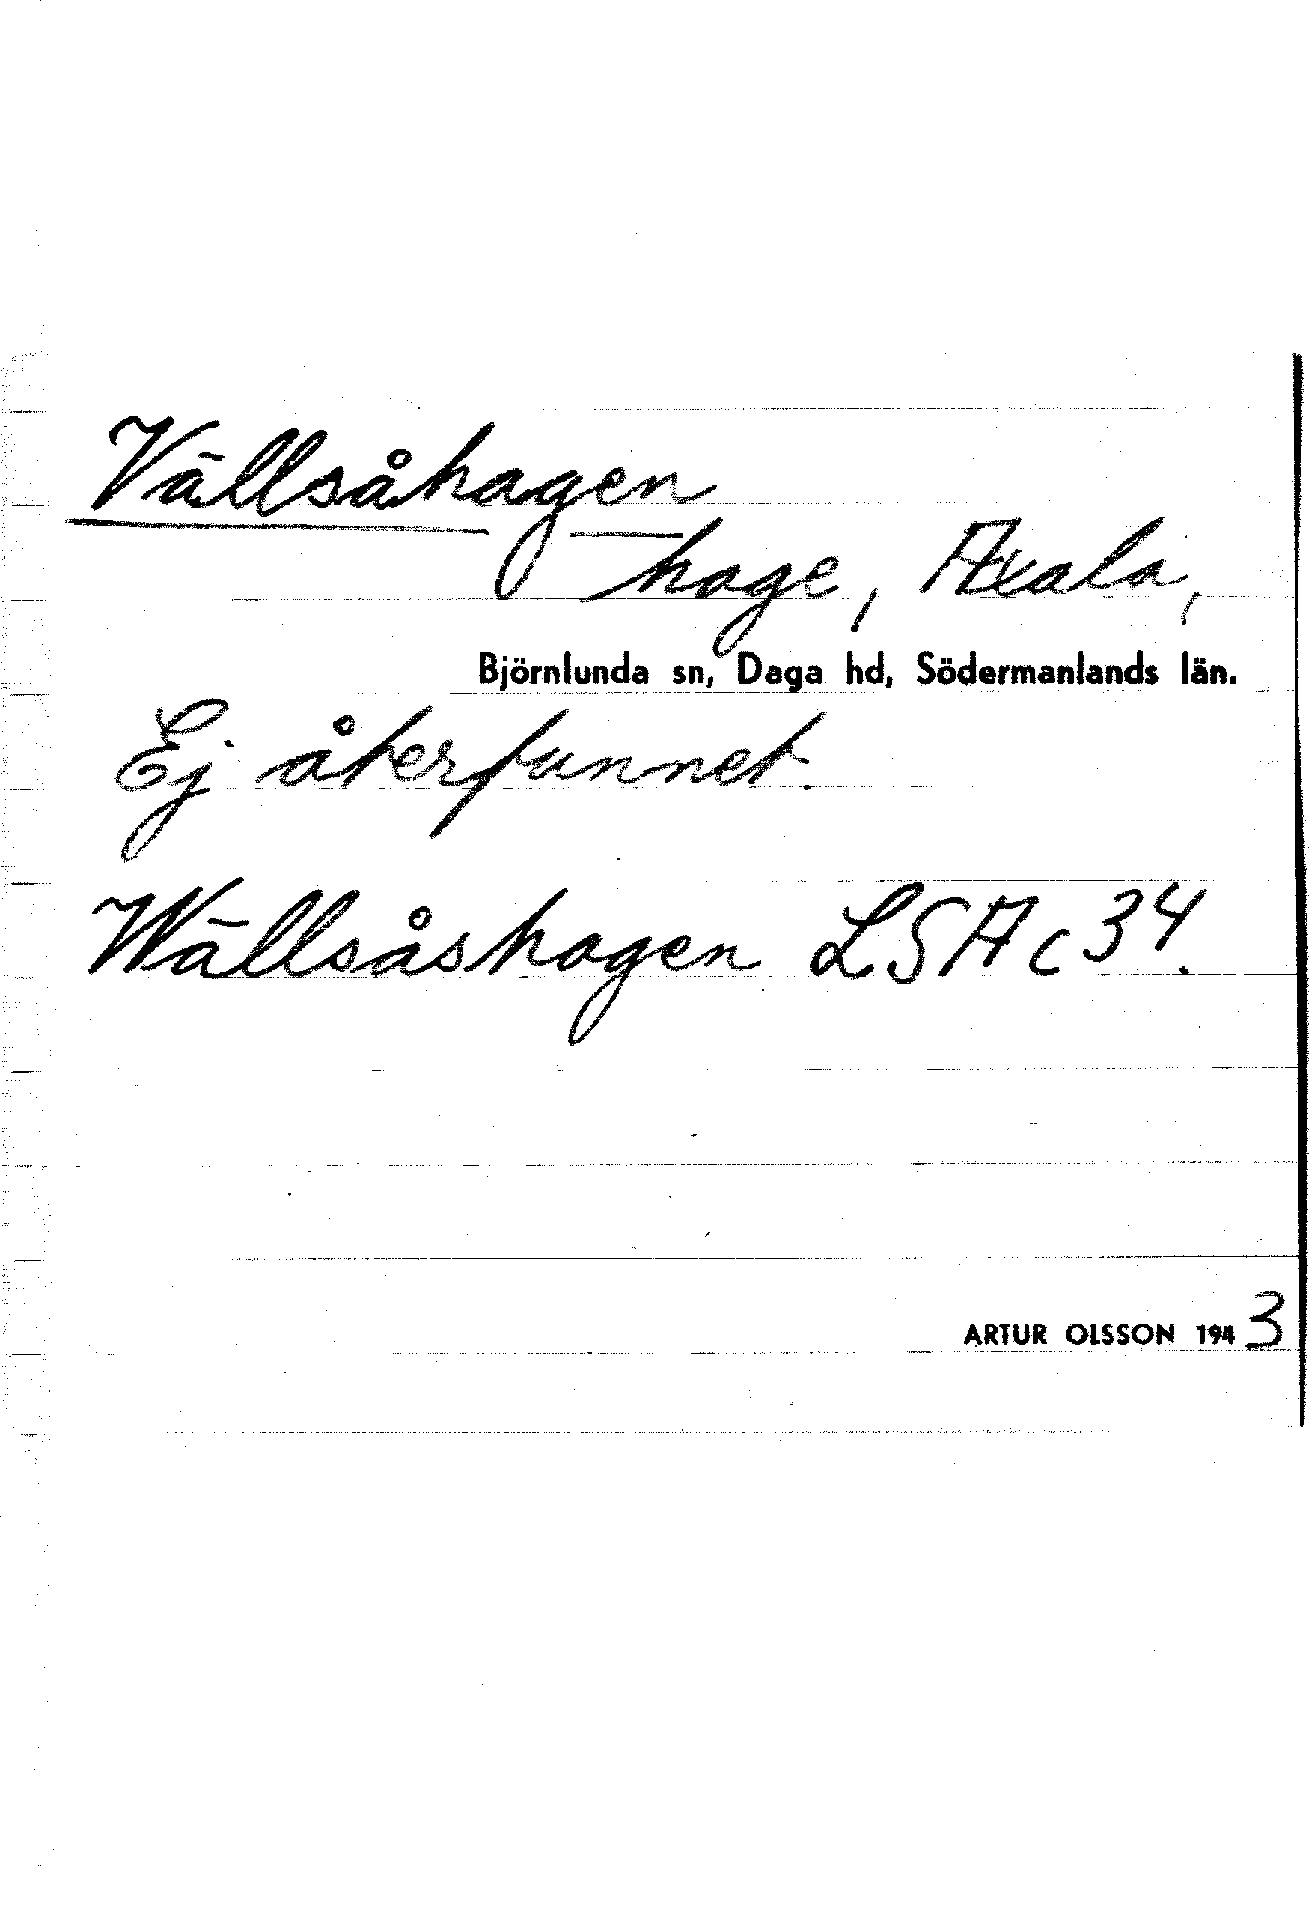 Vällsåhagen
hage, Axala,
Björnlunda sn, Daga hd, Södermanlands län.
Ej återfunnet.
Wällsåshagen LSA c 34.
ARTUR OLSSON 1943